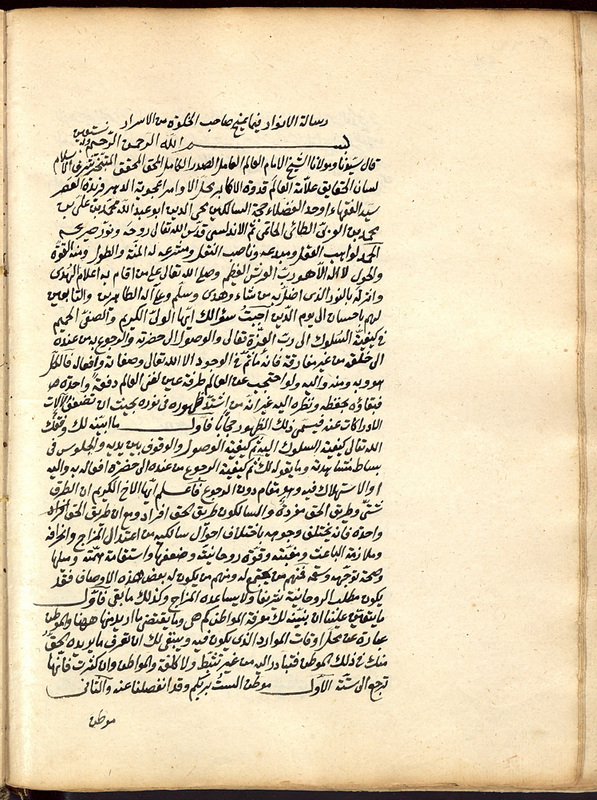 رسالة الانوار فيما يمنح صاحب الخلوة من الاسرار
بسم الله الرحمن الرحيم وبه نستعين
قال سيدنا ومولانا الشيخ الامام العالم العامل الصدر الكامل المحقق المتبحر شرف الاسلام
لسان الحقايق علامة العالم قدوة الاكابر محل الاوامر اعجوبة الدهر وفريدة العصر
سيد الفقهاء اوحد الفضلاء حجة السالكين محي الدين ابو عبد الله محمد بن علي بن
محمد بن العربي الطائي الحاتمي ثم الاندلسي قدس الله تعالى روحه ونور ضريحه
الحمد لواهب العقل ومبدعه وناصب النقل ومشرعه له المنة والطول ومنه القوة
والحول لا اله الا هو رب العرش العظيم وصلى الله تعالى على من اقام به اعلام الهدى
وانزله بالنور الذي اضل به من شاء وهدى وسلم وعلى اله الطاهرين والتابعين
لهم باحسان الى يوم الدين اجبت سؤالك ايها الولي الكريم والصفي الحميم
في كيفية السلوك الى رب العزة تعالى والوصول الى حضرته والرجوع به من عنده
الى خلقه من غير مفارقة فانه ما ثم في الوجود الا الله تعالى وصفاته وافعاله فالكل
هو وبه ومنه واليه ولو احتجب عن العالم طرفة عين لفنى العالم دفعة واحدة
فبقاؤه بحفظه ونظره اليه غير انه من اشتد ظهوره في نوره بحيث ان تضعف
الادراكات عنه فيسمى ذلك الظهور حجابا فاول ما ابينه لك وفقك
الله تعالى كيفية السلوك اليه ثم كيفية الوصول والوقوف بين يديه والجلوس في
بساط مشاهدته وما يقوله لك ثم كيفية الرجوع من عنده الى حضرة افعاله به واليه
او الاستهلاك فيه وهو مقام دون الرجوع فاعلم ايها الاخ الكريم ان الطرق
شتى وطريق الحق مفردة والسالكون طريق الحق افراد ومع ان طريق الحق
واحدة فانه يختلف وجوهه باختلاف احوال سالكيه من اعتدال المزاج وانحرافه
وملازمة الباعث ومغيبه وقوة روحانيته وضعفها واستقامة همته وميلها
وصحة توجهه وسقمه فمنهم من يجتمع له ومنهم من يكون له بعض هذه الاوصاف فقد
يكون مطلب الروحانية شريفا ولا يساعده المزاج وكذلك ما بقي فاول
ما يتعين علينا ان نبينه لك معرفة المواطن كم هي وما يقتضي ما اريد منها ههنا والموطن
عبارة عن محل اوقات الموارد الذي يكون فيه وينبغي لك ان تعرف ما يريده الحق
منك في ذلك الموطن فتبادر اليه من غير تثبط ولا كلفة والمواطن وان كثرت فانها
ترجع الى ستة الاول موطن الست بربكم وقد انفصلنا عنه والثاني
موطن